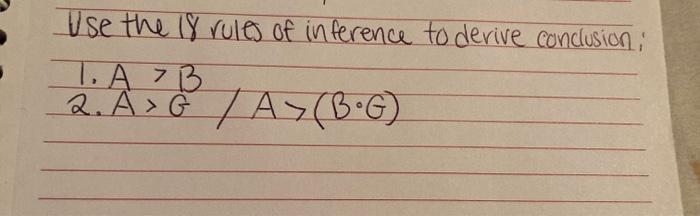 Use the 18 rules of inference to derive conclusion;
1. A > B
2. A > G / A > (B•G)